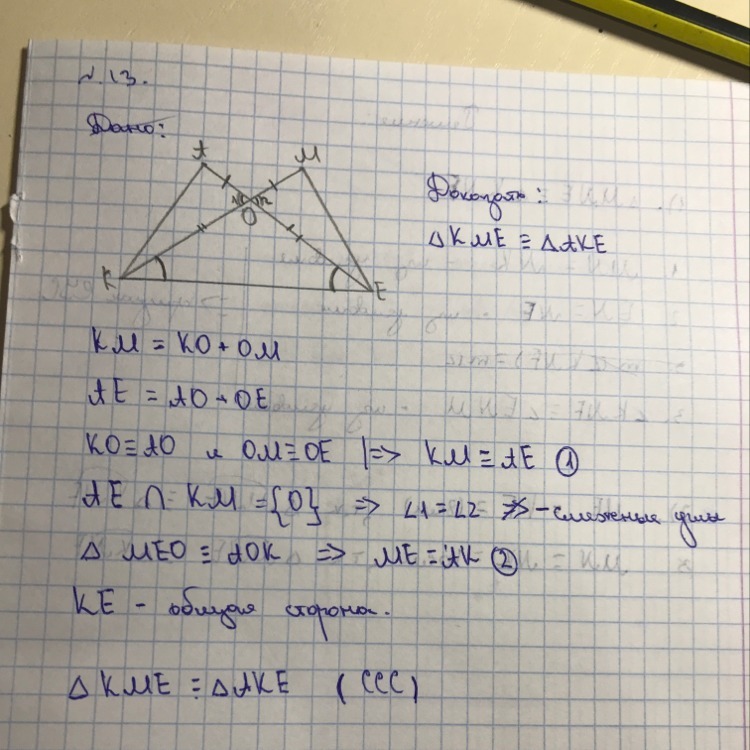 №13.
Дано:
A
M
O
1
2
K
E
Доказать:
△KME ≡ △AKE
KM = KO + OM
AE = AO + OE
KO ≡ AO и OM ≡ OE |=> KM ≡ AE ①
AE ∩ KM = {O} => ∠1 = ∠2 - смежные углы
△ MEO ≡ AOK => ME ≡ AK ②
KE - общая сторона.
△ KME ≡ △AKE (ССС)